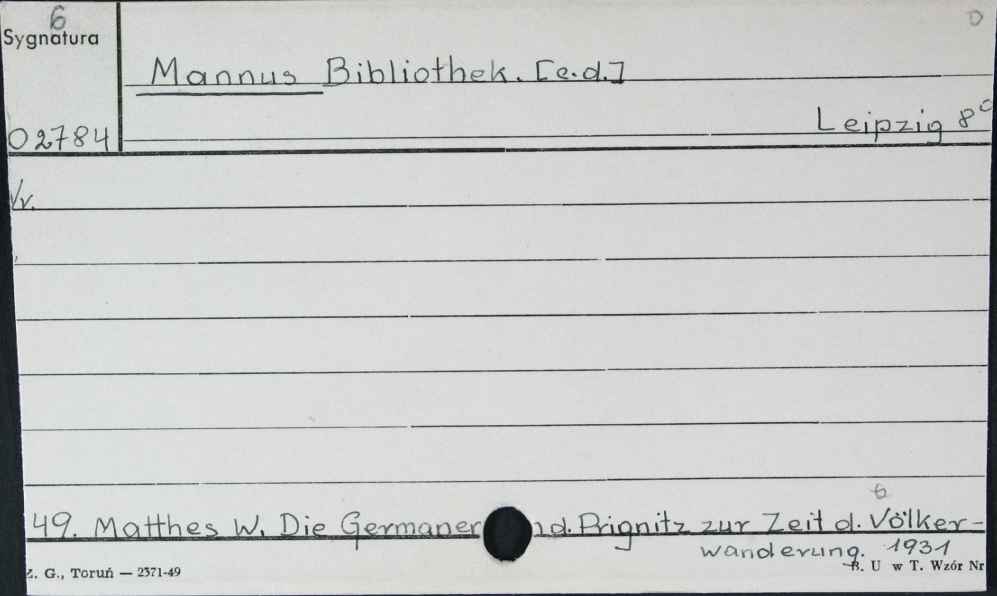 6
Sygnatura
Mannus Bibliothek. [e.d.]
Leipzig 8°
02784
Vr.
6
49. Matthes W. Die Germanen d. Prignitz zur Zeit d. Völker-
wanderung. 1931
Z. G., Toruń — 2371-49
B. U w T. Wzór Nr